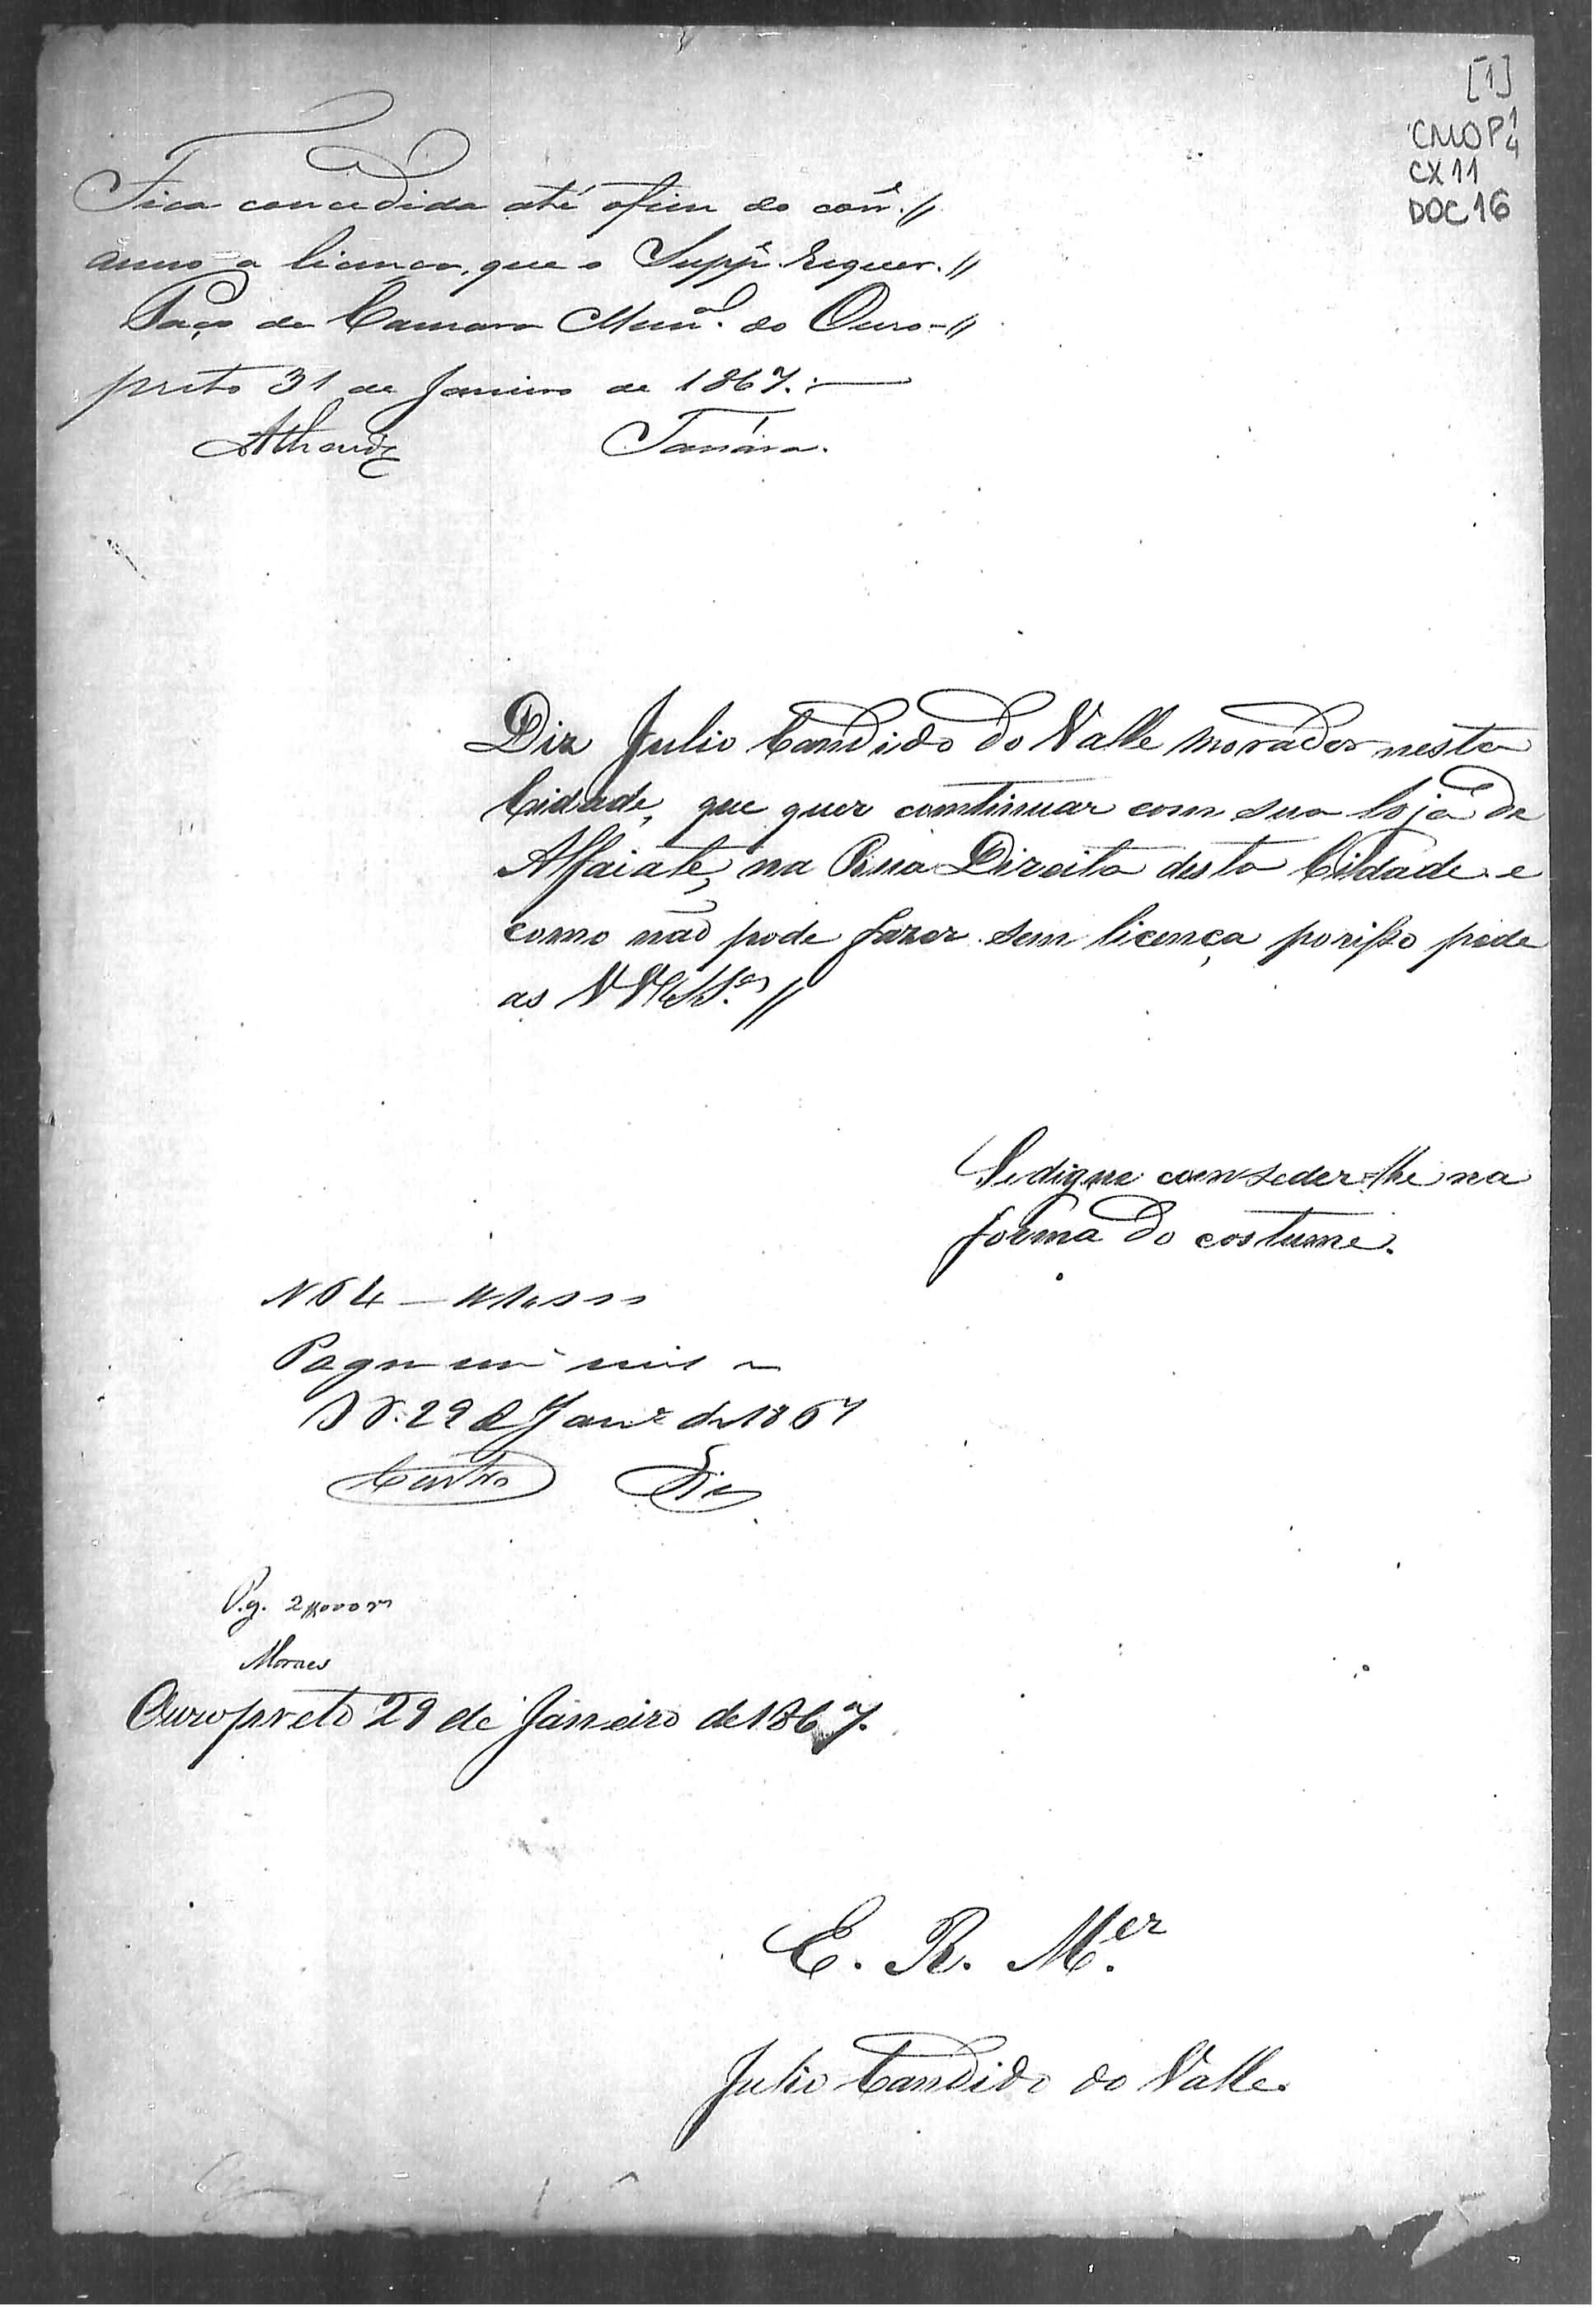 [1]
CMOP 1/4
CX 11
DOC 16
Fica concedida até ofim do corr.e //
anno a licença, que o Supp.e requer. //
Paço da Camara Mun.al do Ouro- //
preto 31 de Janeiro de 1867. —
Diz Julio Candido do Valle morador nesta
Cidade, que quer comtinuar com sua loja de
Alfaiate, na Rua Direita desta Cidade e
como não pode fazer sem licença porisso pede
as VVSS.as //
Se digne comseder-lhe na
forma do costume.
N 64 —
Pagou um mil
29 de Janr.o de 1867
Castro Dias
P.g. 2$000 rs
Moraes
Ouropreto 29 de Janeiro de 1867.
E. R. M.er
Julio Candido do Valle.